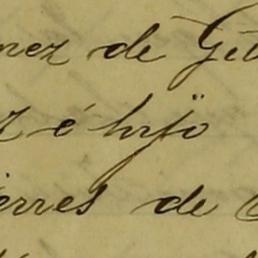 nez de Gil
z é hijo
ierres de